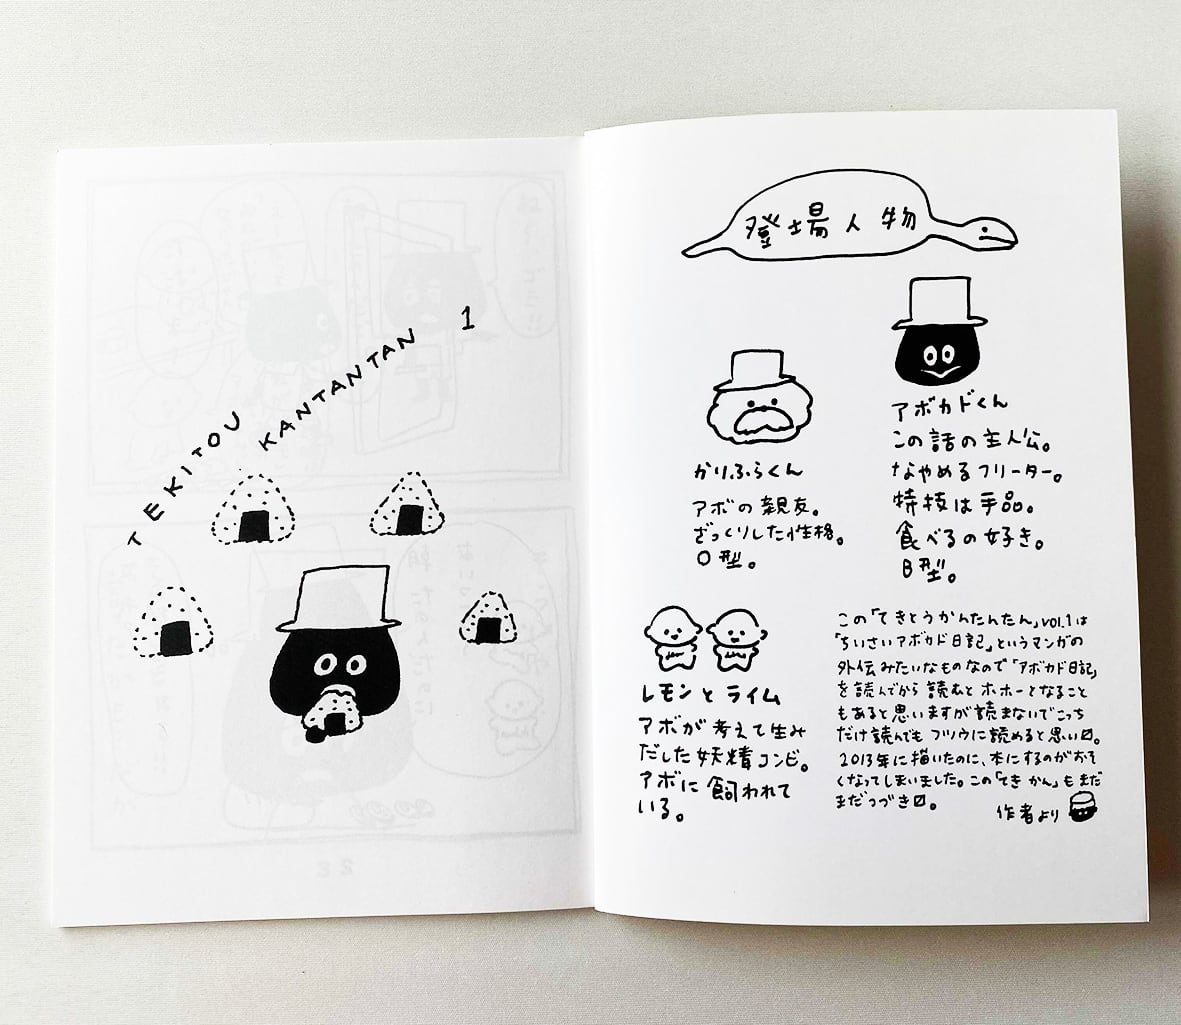 TEKITOU
KANTANTAN 1
登場人物
アボカドくん
この話の主人公。
なやめるフリーター。
特技は手品。
食べるの好き。
B型。
かりふらくん
アボの親友。
ざっくりした性格。
O型。
レモンとライム
アボが考えて生み
だした妖精コンビ。
アボに飼われて
いる。
この「てきとうかんたんたん」vol.1は
「ちいさいアボカド日記」というマンガの
外伝みたいなものなので「アボカド日記」
を読んでから読むとホホーとなること
もあると思いますが読まないでこっち
だけ読んでもフツウに読めると思い〼。
2013年に描いたのに、本にするのがおそ
くなってしまいました。この「てきかん」もまだ
まだつづき〼。
作者より